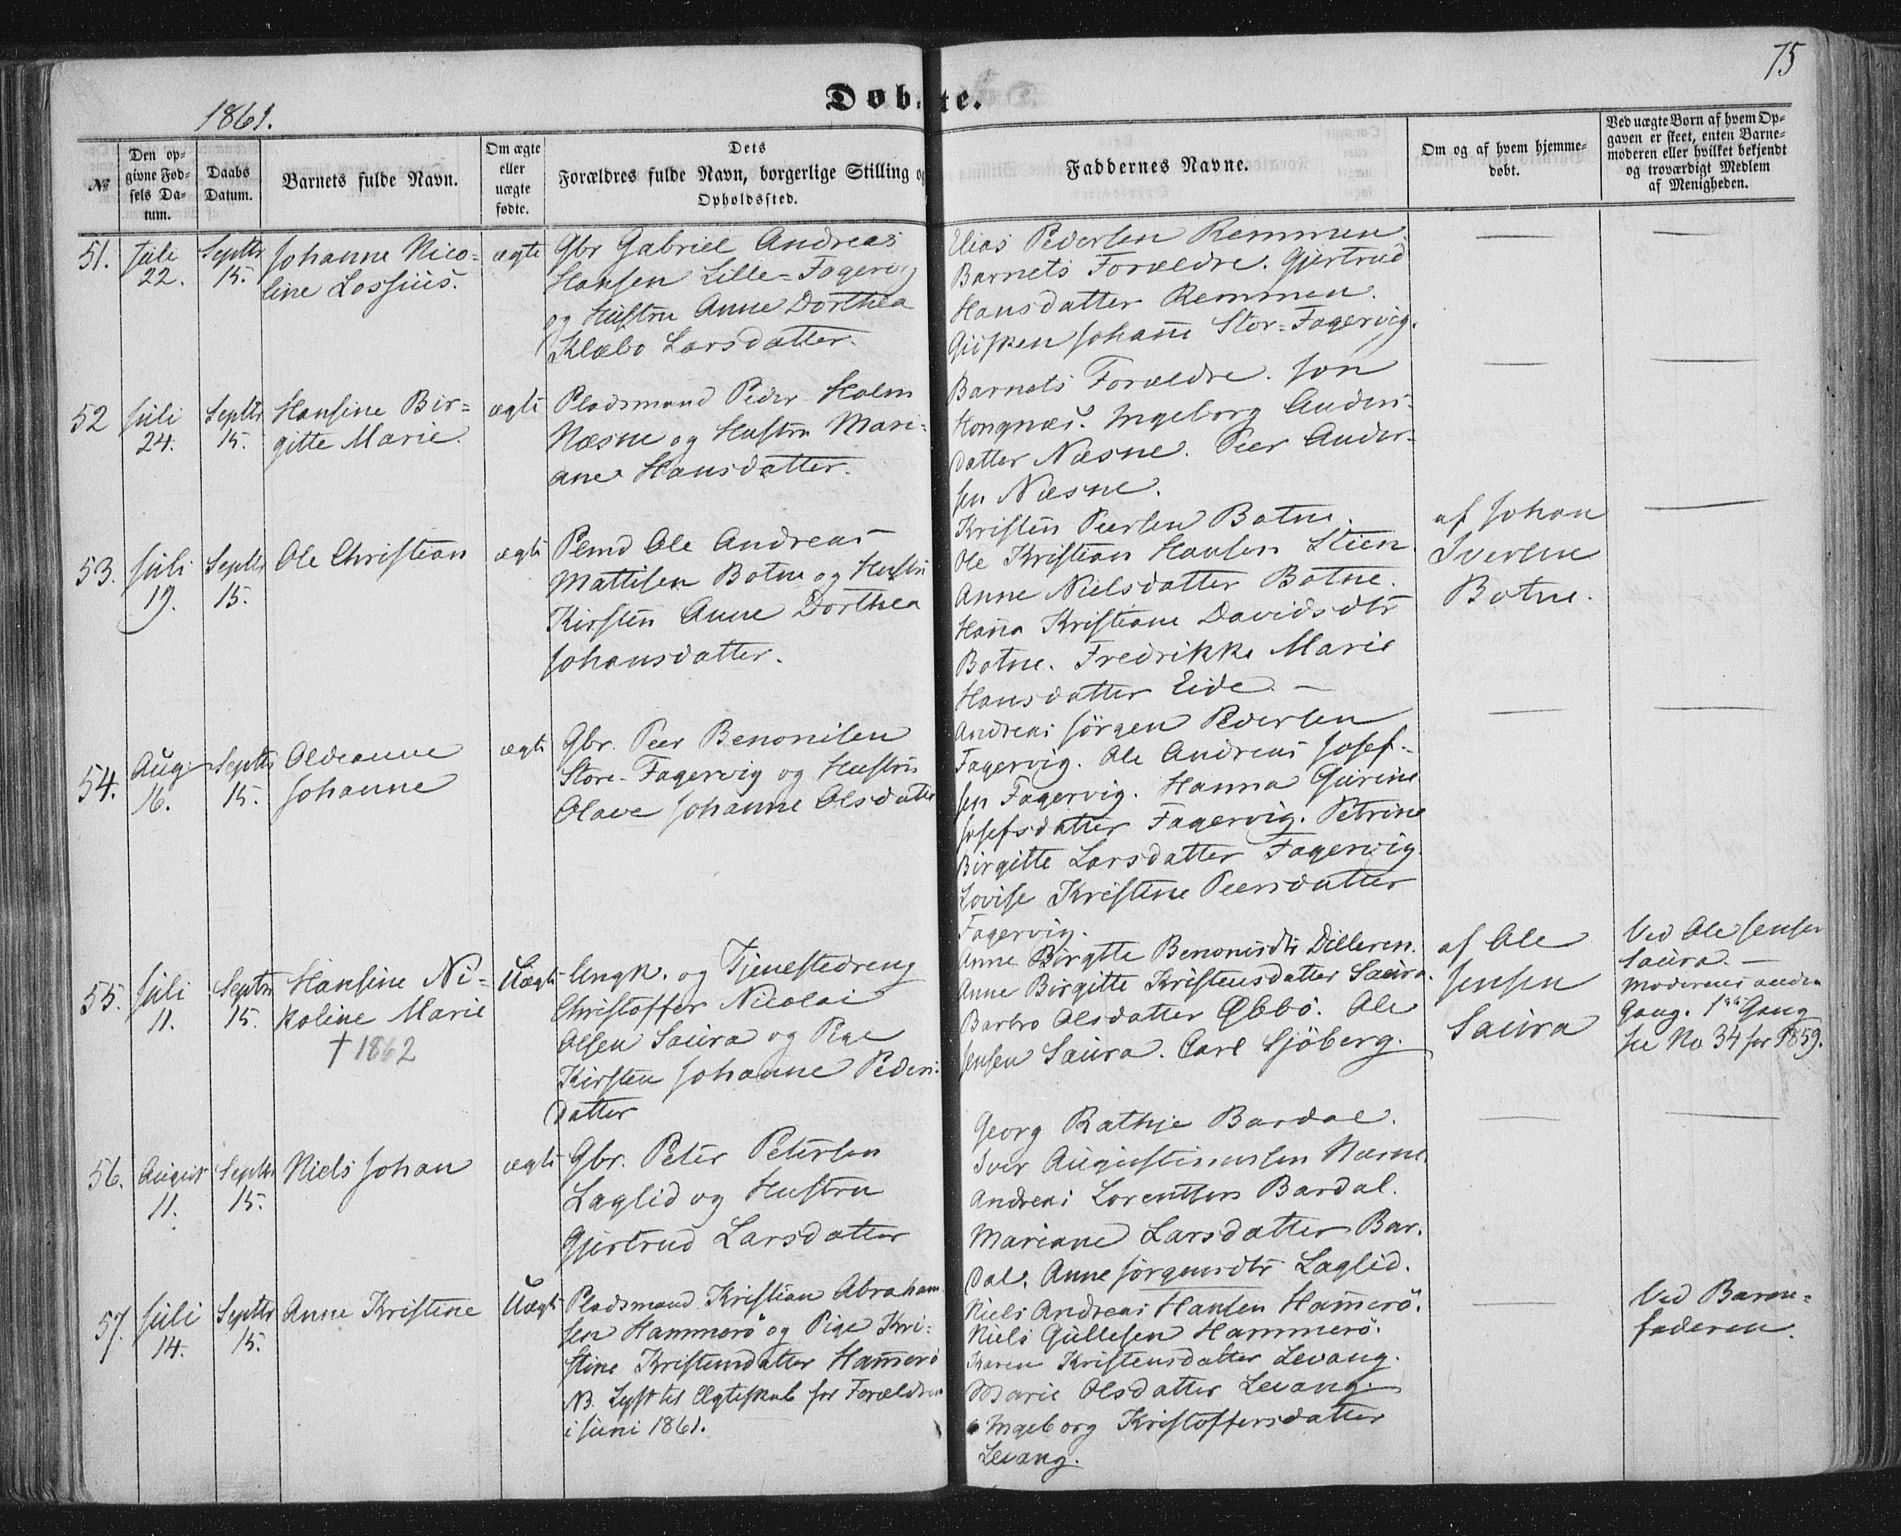 75
Døbte.
1861.
№
Den opgivne Fødsels Datum.
Daabs Datum.
Barnets fulde Navn.
Om ægte eller uægte fødte.
Dets Forældres fulde Navn, borgerlige Stilling og Opholdssted.
Faddernes Navne.
Om og af hvem hjemmedøbt.
Ved uægte Børn af hvem Opgaven er skeet, enten Barnemoderen eller hvilket bekjendt og troværdigt Medlem af Menigheden.
51.
Juli
22.
Septbr
15.
Johanne Nico-
line Lossius.
ægte
Gbr Gabriel Andreas
Hansen Lille-Fagervig
og Hustru Anne Dorthea
Klæbo Larsdatter.
Elias Pedersen Remmen.
Barnets Forældre. Gjertrud
Hansdatter Remmen.
Johane Stor-Fagervig.
52
Juli
24.
Septbr
15.
Hansine Bir-
gitte Marie.
ægte
Pladsmand Peder Holm
Næsne og Hustru Mari-
ane Hansdatter.
Barnets Forældre. Jon
Hongnæs. Ingeborg Anders-
datter Næsne. Peer Ander-
sen Næsne.
53.
Juli
19.
Septbr
15.
Ole Christian
ægte
Plmd Ole Andreas
Mattisen Botne og Hustru
Kirsten Anne Dorthea
Johansdatter.
Kristen Peersen Botne.
Ole Kristian Hansen Stien
Anne Nielsdatter Botne.
Hana Kristiane Davidsdtr
Botne. Fredrikke Marie
Hansdatter Eide. —
af Johan
Iversen
Botne.
54.
Aug.
16.
Septbr
15.
Oldeanne
Johanne
ægte
Gbr. Peer Benonisen
Store-Fagervig og Hustru
Olave Johanne Olsdatter
Andreas Jörgen Pedersen
Fagervig. Ole Andreas Josef-
sen Fagervig. Hanna Gurine
Josefsdatter Fagervig. Petrine
Birgitte Larsdatter Fagervig.
Lovise Kristine Peersdatter
Fagervig.
55.
Juli
11.
Septbr
15.
Hansine Ni-
koline Marie
† 1862
Uægte
Ungk. og Tjenestedreng
Christoffer Nicolai
Olsen Saura og Pige
Kirsten Johanne Peders-
datter
Anne Birgtte Benonisdtr Dilleren.
Anne Birgitte Kristensdatter Saura.
Barbro Olsdatter Øbbö. Ole
Jensen Saura. Carl Sjöberg.
af Ole
Jensen
Saura
Ved Ole Jensen
Saura. —
Moderens anden
Gang. 1ste Gang
see No 34 for 1859.
56.
August
11.
Septbr
15.
Niels Johan
ægte
Gbr. Peter Petersen
Laglid og Hustru
Gjertrud Larsdatter
Georg Rathje Bardal.
Iver Augustinussen Næsne.
Andreas Lorentsen Bardal.
Mariane Larsdatter Bar-
dal. Anne Jörgensdtr Laglid.
57.
Juli
14.
Septbr
15.
Anne Kristine
Uægte
Pladsmand Kristian Abraham
sen Hammerö og Pige Kri-
stine Kristensdatter Hamerö
NB. Lyst til Ægteskab for Forældrene
i Juni 1861.
Niels Andreas Hansen Hamerö.
Niels Gullesen Hammerö.
Karen Kristensdatter Levang.
Marie Olsdatter Levang.
Ingeborg Kristoffersdatter
Levang.
Ved Barne-
faderen.